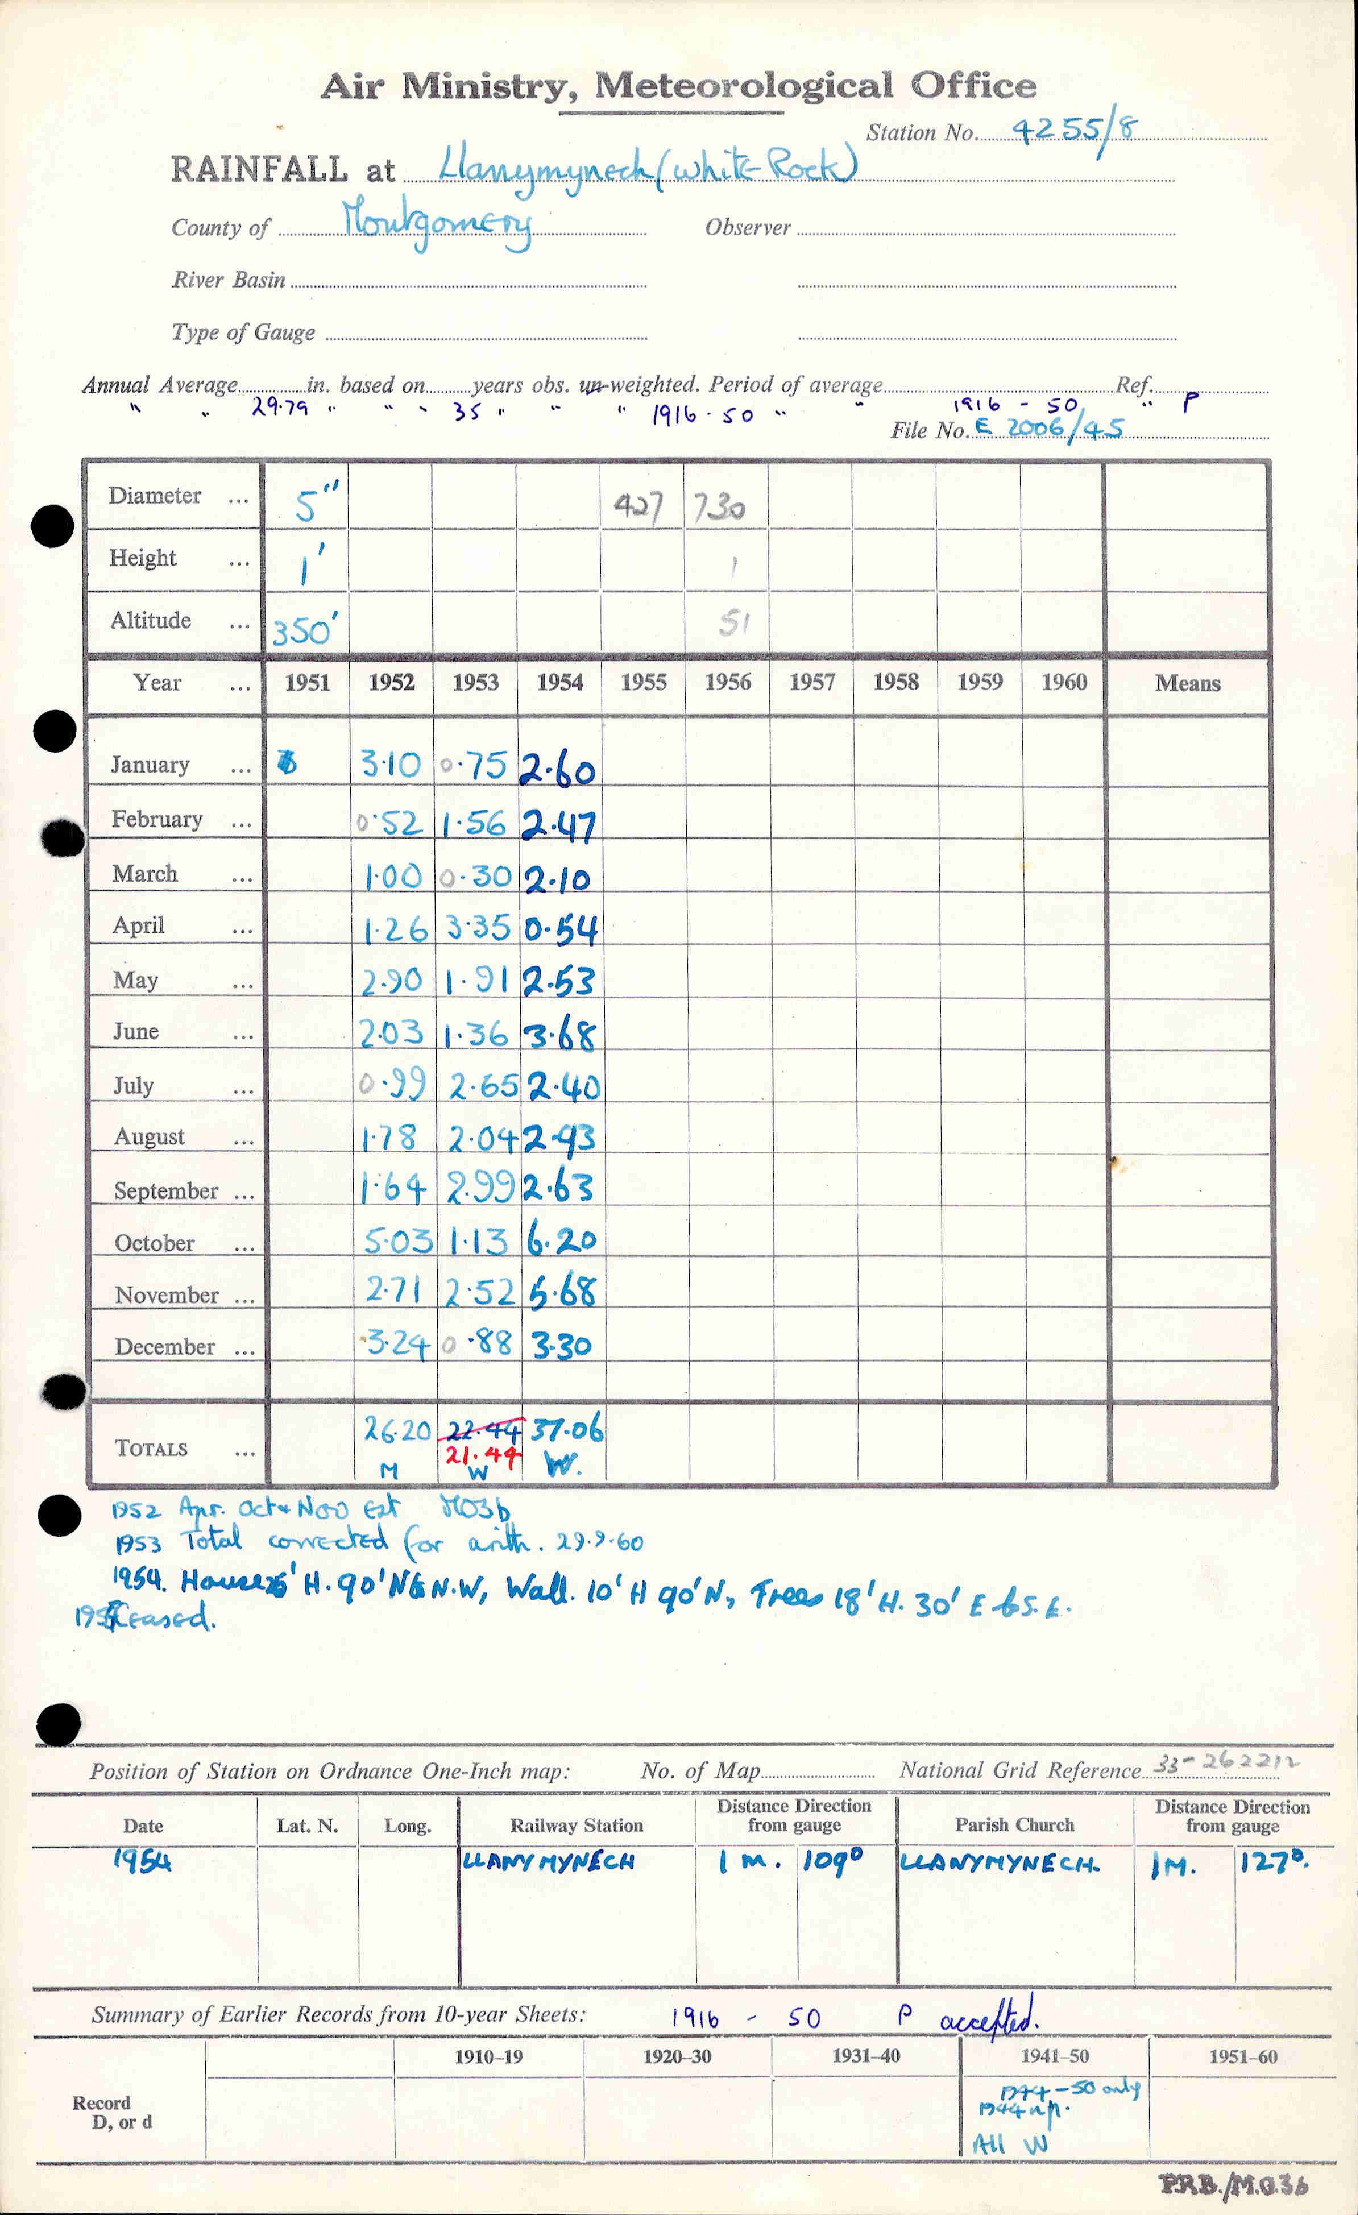 Air Ministry, Meteorological Office
Station No. 4255/8
RAINFALL at Llanymynech (White Rock)
County of Montgomery Observer
River Basin
Type of Gauge
Annual Average in. based on years obs. un-weighted. Period of average Ref.
" " 29.79 " " " 35 " " " 1916-50 " " 1916 - 50 " P
File No. E 2006/45
Diameter ... 5" 427 730
Height ... 1' 1
Altitude ... 350' 51
Year ... 1951 1952 1953 1954 1955 1956 1957 1958 1959 1960 Means
January ... 3.10 0.75 2.60
February ... 0.52 1.56 2.47
March ... 1.00 0.30 2.10
April ... 1.26 3.35 0.54
May ... 2.90 1.91 2.53
June ... 2.03 1.36 3.68
July ... 0.99 2.65 2.40
August ... 1.78 2.04 2.93
September ... 1.64 2.99 2.63
October ... 5.03 1.13 6.20
November ... 2.71 2.52 5.68
December ... 3.24 0.88 3.30
TOTALS ... 26.20 22.44 37.06
21.44
M W W.
1952 Apr. Oct & Nov Est MO3b
1953 Total corrected for arith. 29.9.60
1954. House H. 90' N & N.W, Wall. 10' H 90' N, Trees 18' H. 30' E to S.E.
Ceased.
Position of Station on Ordnance One-Inch map: No. of Map National Grid Reference 33-262212
Date Lat. N. Long. Railway Station Distance Direction from gauge Parish Church Distance Direction from gauge
1954 LLANYMYNECH 1 m. 109° LLANYMYNECH. 1M. 127°.
Summary of Earlier Records from 10-year Sheets: 1916 - 50 P accepted.
1910–19 1920–30 1931–40 1941–50 1951–60
Record
D, or d
1944-50 only
1944 n/p.
All W
P.R.B./M.O.3b